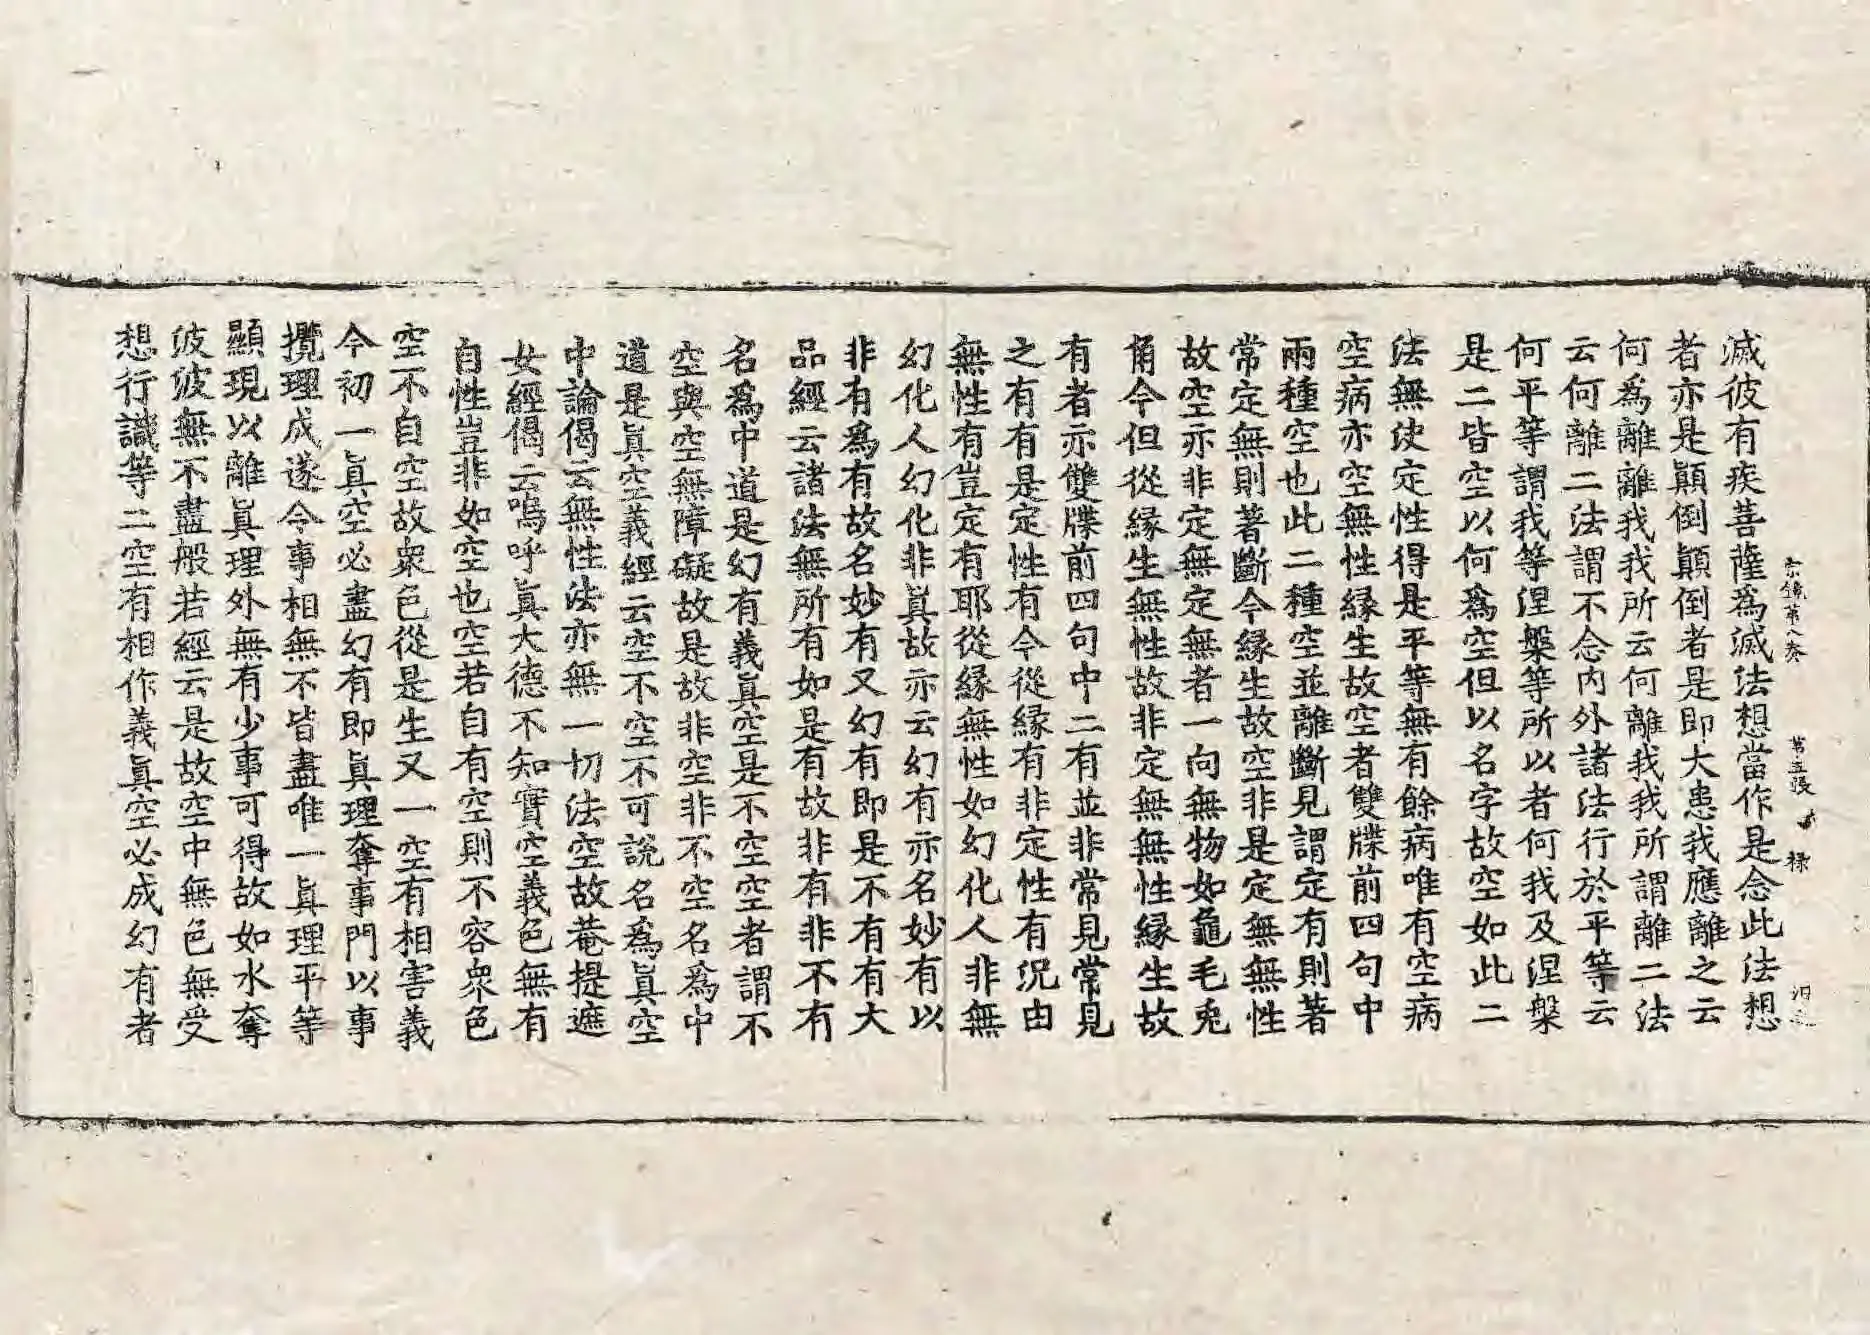 滅彼有疾菩薩爲滅法想當作是念此法想
者亦是顚倒顚倒者是即大患我應離之云
何爲離離我我所云何離我我所謂離二法
云何離二法謂不念內外諸法行於平等云
何平等謂我等涅槃等所以者何我及涅槃
是二皆空以何爲空但以名字故空如此二
法無決定性得是平等無有餘病唯有空病
空病亦空無性緣生故空者雙牒前四句中
兩種空也此二種空並離斷見謂定有則著
常定無則著斷今緣生故空非是定無無性
故空亦非定無定無者一向無物如龜毛兎
角今但從緣生無性故非定無無性緣生故
有者亦雙牒前四句中二有並非常見常見
之有有是定性有今從緣有非定性有況由
無性有豈定有耶從緣無性如幻化人非無
幻化人幻化非眞故亦云幻有亦名妙有以
非有爲有故名妙有又幻有即是不有有大
品經云諸法無所有如是有故非有非不有
名爲中道是幻有義眞空是不空空者謂不
空與空無障礙故是故非空非不空名爲中
道是眞空義經云空不空不可說名爲眞空
中論偈云無性法亦無一切法空故菴提遮
女經偈云嗚呼眞大德不知實空義色無有
自性豈非如空也空若自有空則不容衆色
空不自空故衆色從是生又一空有相害義
今初一眞空必盡幻有即眞理奪事門以事
攬理成遂令事相無不皆盡唯一眞理平等
顯現以離眞理外無有少事可得故如水奪
波波無不盡般若經云是故空中無色無受
想行識等二空有相作義眞空必成幻有者
宗鏡第八卷 第五張 祿